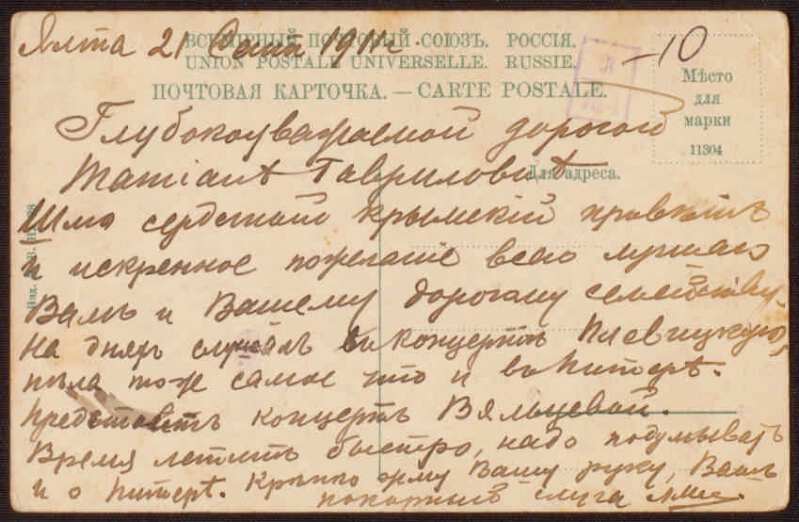 Ялта 21 Сент 191
ВСЕМІРНЫЙ ПОЧТОВЫЙ СОЮЗЪ. РОССІЯ.
UNION POSTALE UNIVERSELLE. RUSSIE.
–10
ПОЧТОВАЯ КАРТОЧКА. — CARTE POSTALE.
Мѣсто
для
марки
11304
Глубокоуважаемой дорогой
Для адреса.
Татіанѣ Гавриловнѣ
Шлю сердечный крымскій привѣтъ
и искреннее пожеланіе всего лучшаго
Вамъ и Вашему дорогому семейству.
На дняхъ слушалъ въ концертѣ Плевицкую,
пѣла тоже самое что и въ Питерѣ.
Предстоитъ концертъ Вяльцевой.
Время летитъ быстро, надо подумывать
и о Питерѣ. Крѣпко жму Вашу руку, Вашъ
покорный слуга